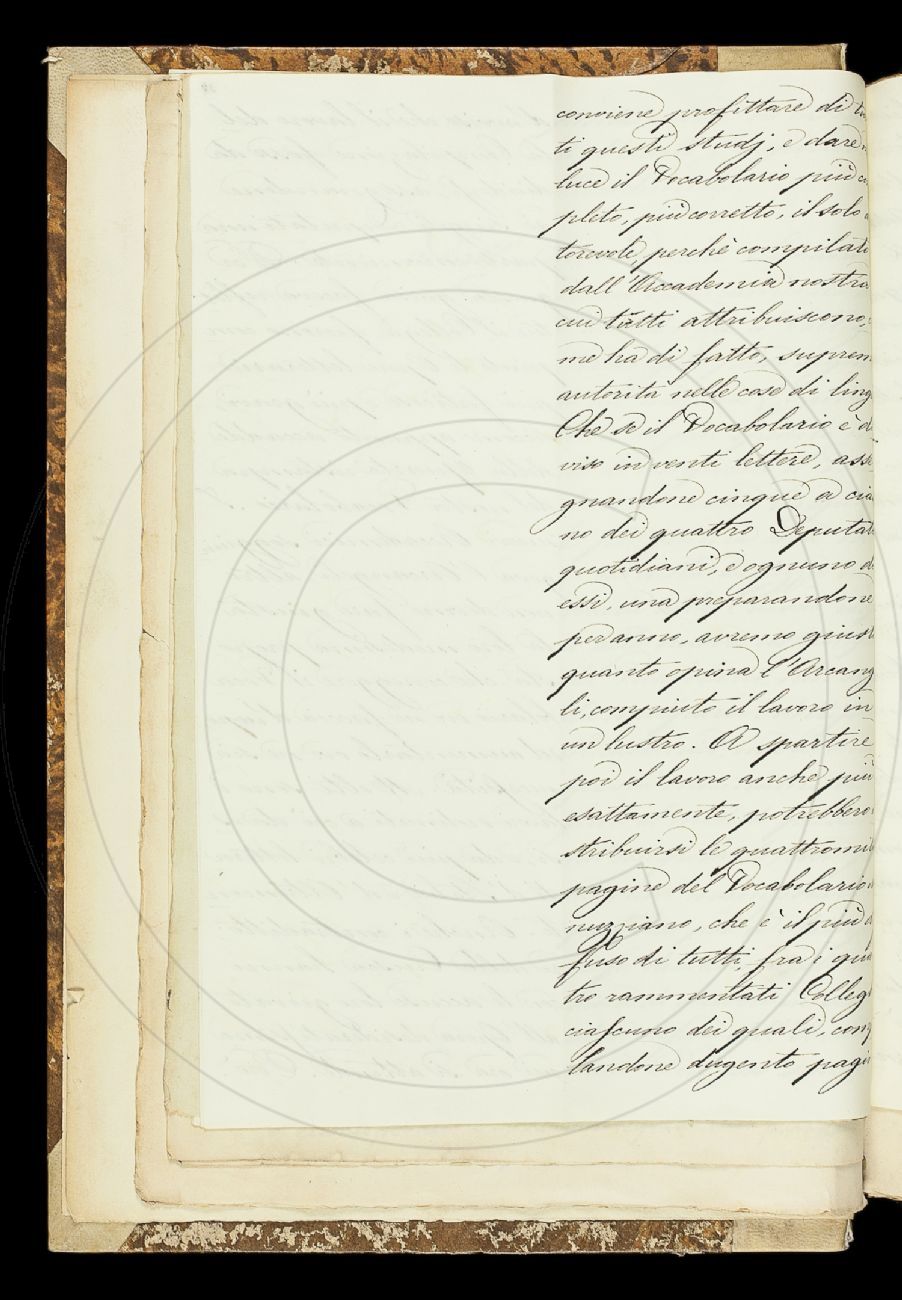 conviene profittare di tu
ti questi studj, e dare
luce il Vocabolario più co
pleto, più corretto, il solo
torevole, perchè compilato
dall'Accademia nostra
cui tutti attribuiscono,
me ha di fatto, suprem
autorità nelle cose di ling
Che se il Vocabolario è d
viso in venti lettere, asse
gnandone cinque a cia
no dei quattro Deputati
quotidiani, e ognuno d
essi, una preparandone
per anno, avremo giust
quanto opina l'Arcang
li, compiuto il lavoro in
un lustro. A spartire
poi il lavoro anche più
esattamente, potrebbero
stribuirsi le quattromil
pagine del Vocabolario
nuzziano, che è il più d
fuso di tutti, fra i qua
tro rammentati Colleg
ciascuno dei quali, comp
landone dugento pagi